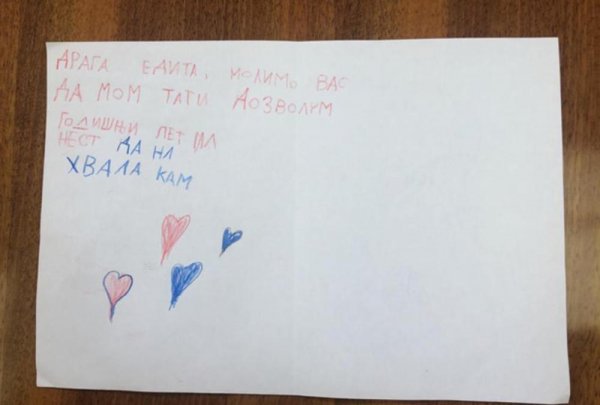 ДРАГА ЕДИТА, МОЛИМО ВАС
ДА МОМ ТАТИ ДОЗВОЛИМ
ГОДИШЊИ ПЕТ ИЛ
ШЕСТ ДА НА
ХВАЛА КАМ